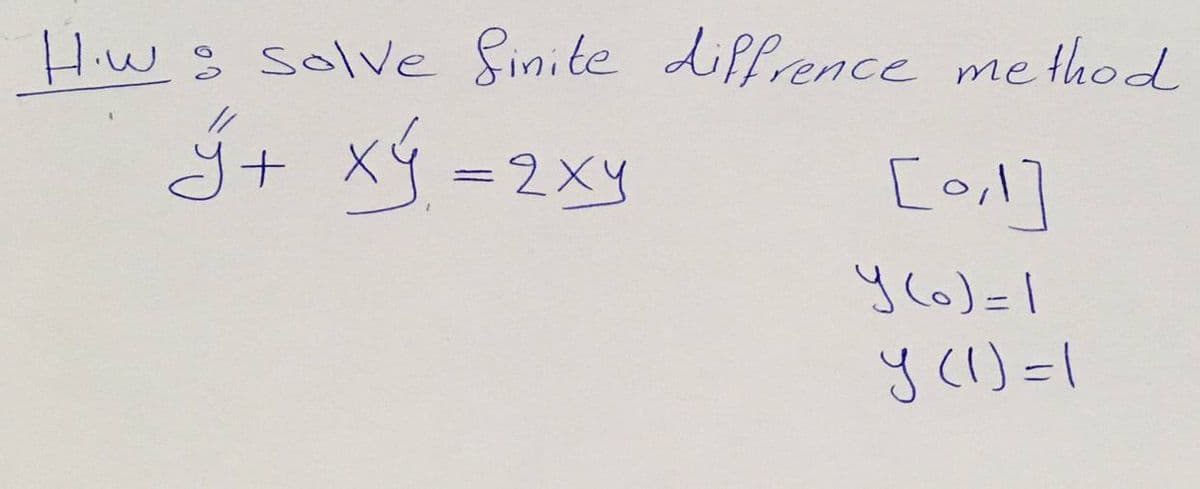 H.w : solve finite diffrence method
y'' + xy' = 2xy [0,1]
y(0)=1
y(1)=1